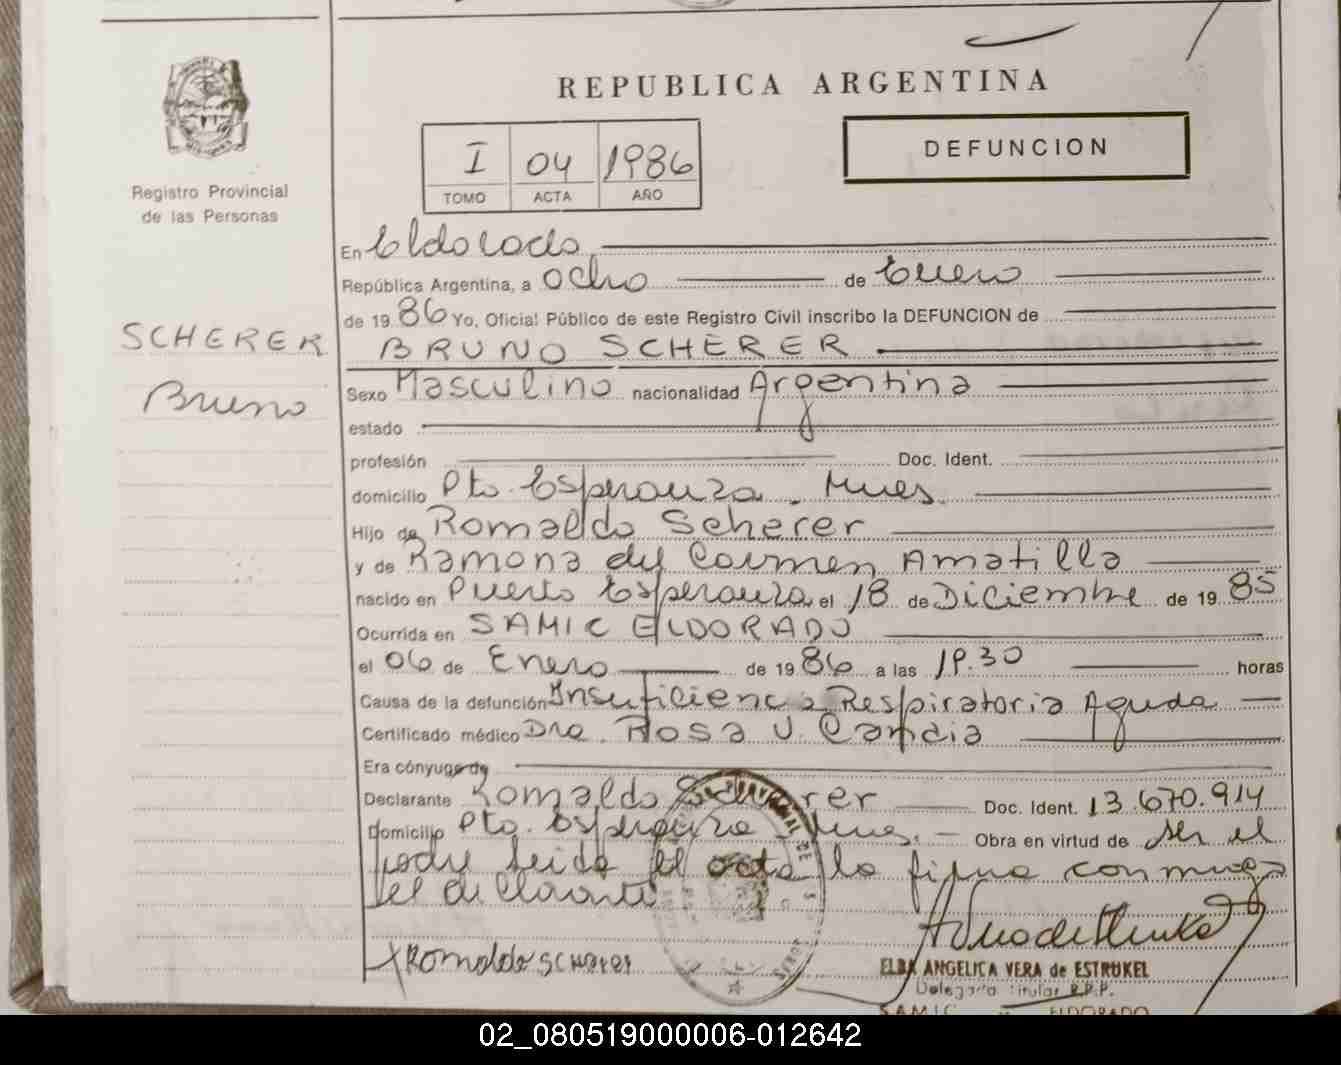 REPUBLICA ARGENTINA
DEFUNCION
I 04 1986
TOMO ACTA AÑO
Registro Provincial
de las Personas
SCHERER
Bruno
En Eldorado
República Argentina, a Ocho de Enero
de 19 86 Yo, Oficial Público de este Registro Civil inscribo la DEFUNCION de
BRUNO SCHERER
Sexo Masculino nacionalidad Argentina
estado
profesión Doc. Ident.
domicilio Pto. Esperanza - Mnes.
Hijo de Romaldo Scherer
y de Ramona del Carmen Amatilla
nacido en Puerto Esperanza el 18 de Diciembre de 19 85
Ocurrida en SAMIC ELDORADO
el 06 de Enero de 19 86 a las 19.30 horas
Causa de la defunción Insuficiencia Respiratoria Aguda
Certificado médico Dra. Rosa V. Candia
Era cónyuge de
Declarante Romaldo Scherer Doc. Ident. 13.670.914
Domicilio Pto. Esperanza - Mnes. - Obra en virtud de ser el
padre leida el acta la firma conmigo
el declarante
Romaldo Scherer
ELBA ANGELICA VERA de ESTRUKEL
Delegada Titular R.P.P.
SAMIC ELDORADO
02_080519000006-012642